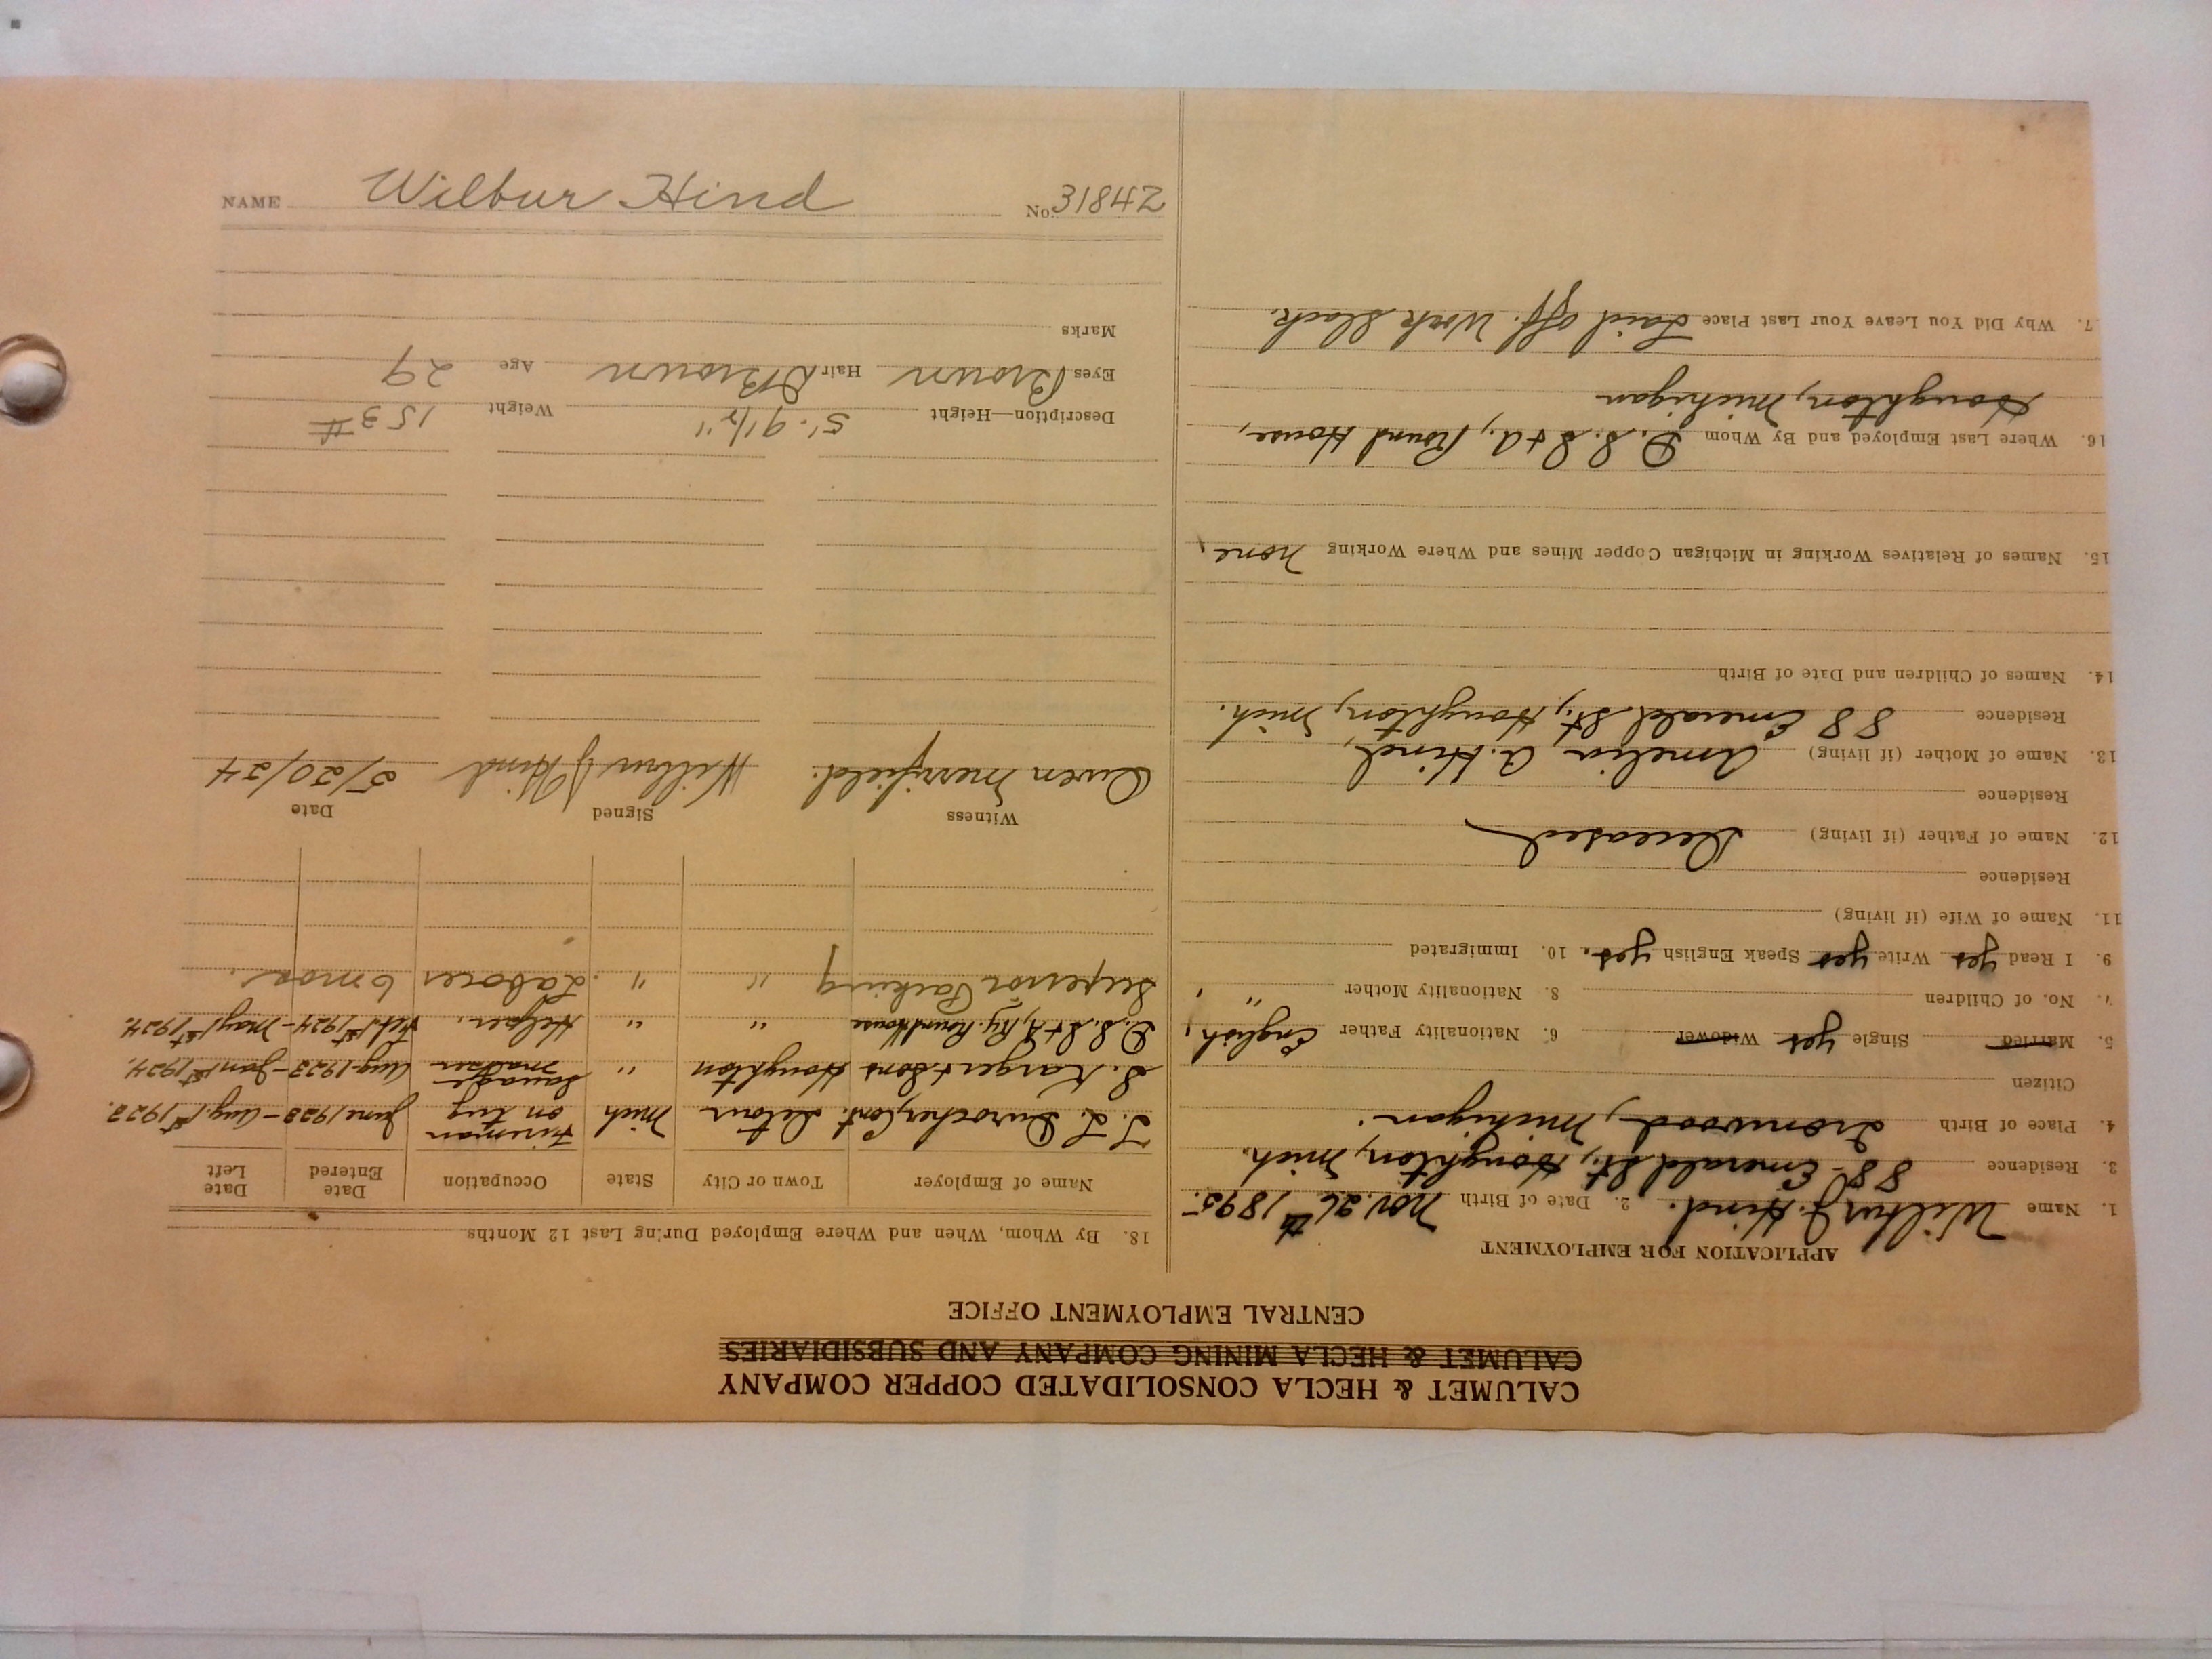 CALUMET & HECLA CONSOLIDATED COPPER COMPANY
CALUMET & HECLA MINING COMPANY AND SUBSIDIARIES
CENTRAL EMPLOYMENT OFFICE
APPLICATION FOR EMPLOYMENT
1. Name Wilbur J. Hind. 2. Date of Birth Nov. 26th 1895.
3. Residence 88 - Emerald St., Houghton, Mich.
4. Place of Birth Ironwood, Michigan.
Citizen
5. Married Single yes Widower 6. Nationality Father English,
7. No. of Children 8. Nationality Mother " "
9. I Read yes Write yes Speak English yes. 10. Immigrated
11. Name of Wife (if living)
Residence
12. Name of Father (if living) Deceased
Residence
13. Name of Mother (if living) Amelia A. Hind,
Residence 88 Emerald St., Houghton, Mich.
14. Names of Children and Date of Birth
15. Names of Relatives Working in Michigan Copper Mines and Where Working None,
16. Where Last Employed and By Whom D. S. S & A, Round House,
Houghton, Michigan
7. Why Did You Leave Your Last Place Laid off. Work Slack.
18. By Whom, When and Where Employed During Last 12 Months
Name of Employer Town or City State Occupation Date Entered Date Left
T. L. Durocher, Cont. Detour Mich Fireman on tug June 1923 - Aug. 1st 1923.
S. Karger & Sons Houghton " Sausage maker Aug. 1923 - Jan 1st 1924.
D. S. S & A, Ry. Round House " " Helper. Feb. 1st 1924 - May 1st 1924.
Superior Packing " " Laborer 6 mos.
Witness Signed Date
Owen Merrifield. Wilbur J Hind 5/20/24
Description—Height 5'. 9 1/2" Weight 153 #
Eyes Brown Hair D Brown Age 29
Marks
NAME Wilbur Hind No. 31847